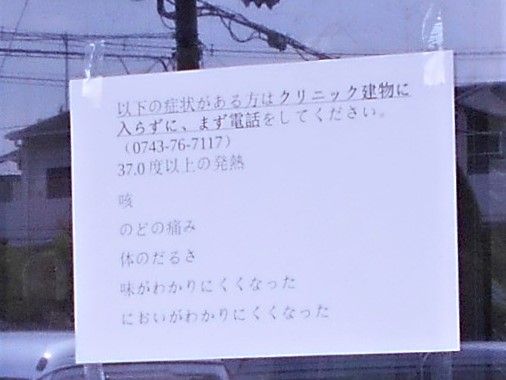 以下の症状がある方はクリニック建物に
入らずに、まず電話をしてください。
（0743-76-7117）
37.0度以上の発熱
咳
のどの痛み
体のだるさ
味がわかりにくくなった
においがわかりにくくなった